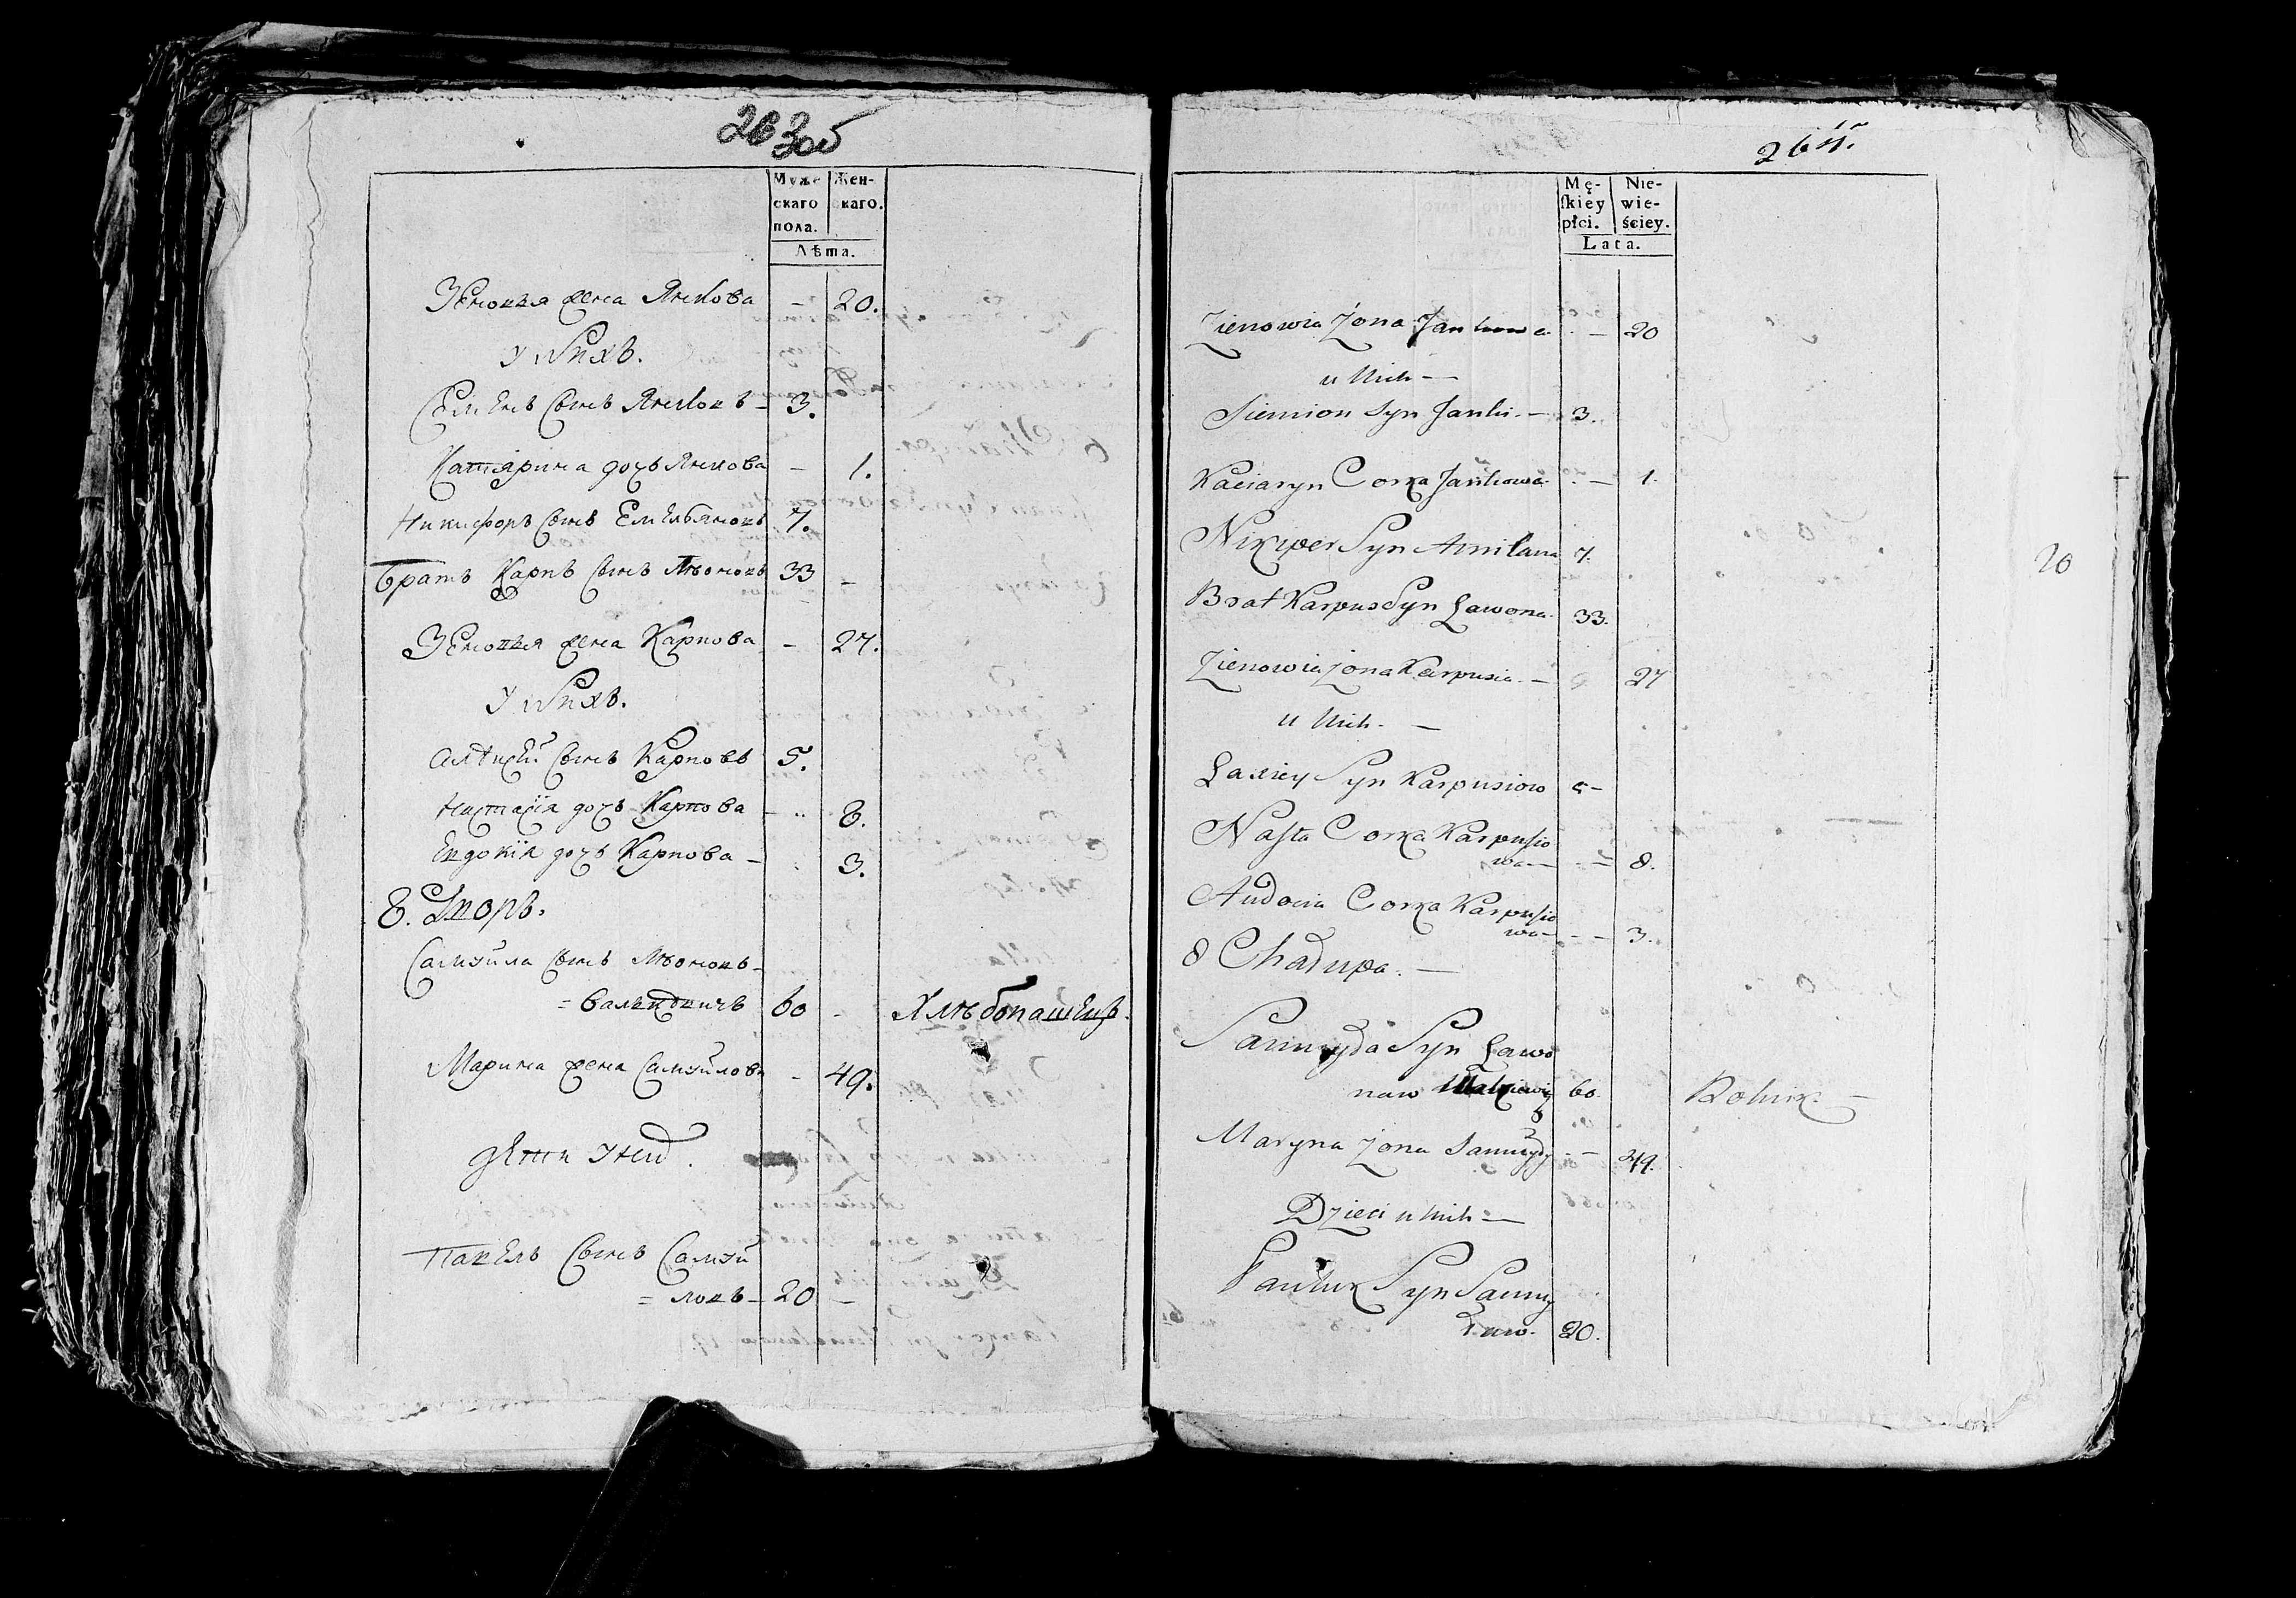 263об
Муже
скаго
пола.
Жен-
скаго.
Лѣта.
Зеновья жена Янкова - 20.
У нихъ.
Семенъ сынъ Янковъ - 3.
Катярина дочь Янкова - 1.
Никифоръ сынъ Емельяновъ 7.
Братъ Карпъ сынъ Лѣвоновъ 33 -
Зеновья жена Карпова - 27.
У нихъ.
Алѣксѣй сынъ Карповъ 5.
Настасія дочь Карпова - 8.
Евдокія дочь Карпова - 3.
8. Дворъ.
Самуйла сынъ Лѣвоновъ -
= 60 - Хлѣбопашецъ.
Марина жена Самуйлова - 49.
дети у нихъ.
Павелъ сынъ Самуй
= ловъ - 20 -
264.
Mę-
skiey
płci.
Nie-
wie-
ściey.
Lata.
Zienowia Zona Jankowa - 20
u Nich -
Siemion Syn Janki - 3.
Kaciaryn Corka Jankowa - 1.
Nikiper Syn Amilana 7.
Brat Karpus Syn Lawona 33.
20
Zienowia Zona Karpusia - 27
u Nich -
Laxiey Syn Karpusiow 5 -
Nasta Corka Karpusio
wa - - 8.
Audocia Corka Karpusio
wa - - 3.
8 Chadupa. -
Samuyda Syn Lawo
naw 60. Rolnik -
Maryna Zona Samuydy - 49.
Dzieci u Nich -
Pauluk Syn Samuy
daw. 20.